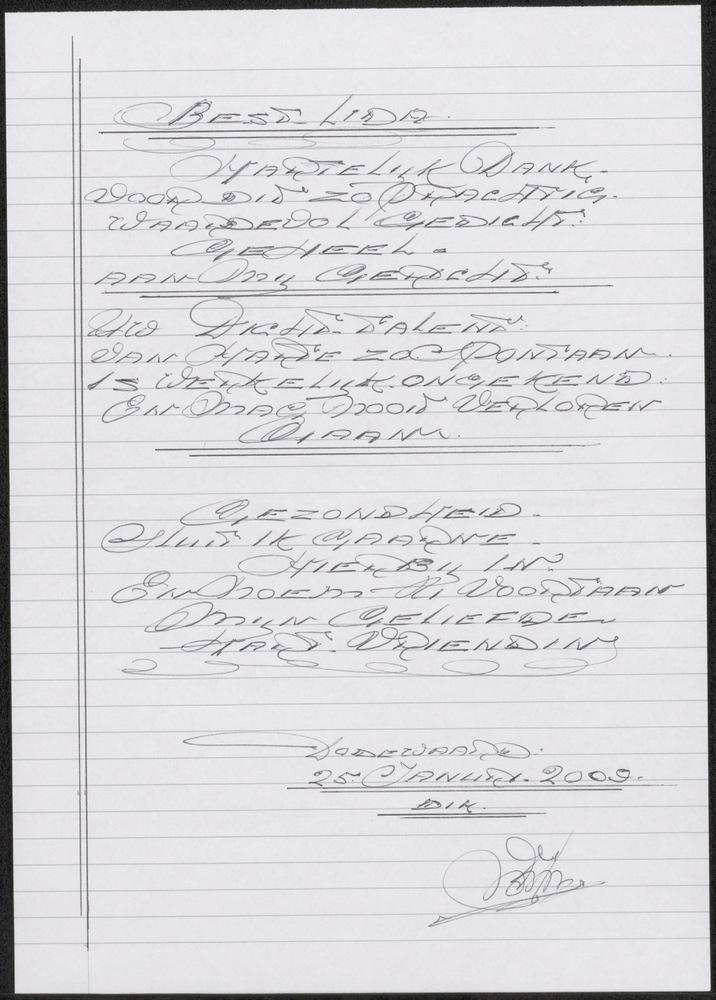 BEST LIDA.
HARTELIJK DANK,
VOOR DIT ZO PRACHTIG.
WAARDEVOL GEDICHT:
GEHEEL.
AAN MIJ GERICHT.
UW DICHT-TALENT:
VAN HARTE ZO SPONTAAN.
IS WERKELIJK ONGEKEND:
EN MAG NOOIT VERLOREN
GAAN.
GEZONDHEID.
SLUIT IK GAARNE.
HIERBIJ IN.
EN NOEM U, VOORTAAN
MIJN GELIEFDE
HART. VRIENDIN
DODEWAARD.
25. JANUARI. 2009.
DIK.